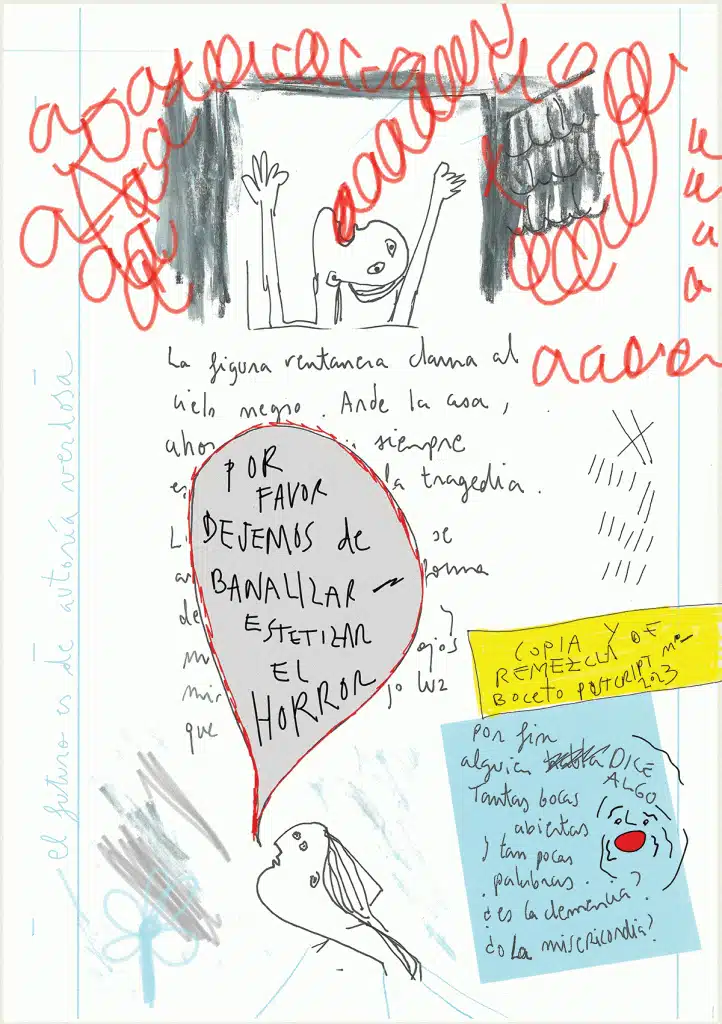 La figura ventanera clama al
cielo negro. Arde la casa,
ahor siempre
es la tragedia.
L se
forma
de y
ojos
mir jo luz
que
POR
FAVOR
DEJEMOS de
BANALIZAR –
ESTETIZAR
EL
HORROR
COPIA Y DE
REMEZCLA
BOCETO POSTCRIPT
2023
por fin
alguien DICE
ALGO
Tantas bocas
abiertas
y tan pocas
palabras.
¿es la demencia?
¿o La misericordia?
el futuro es de autoría verdosa